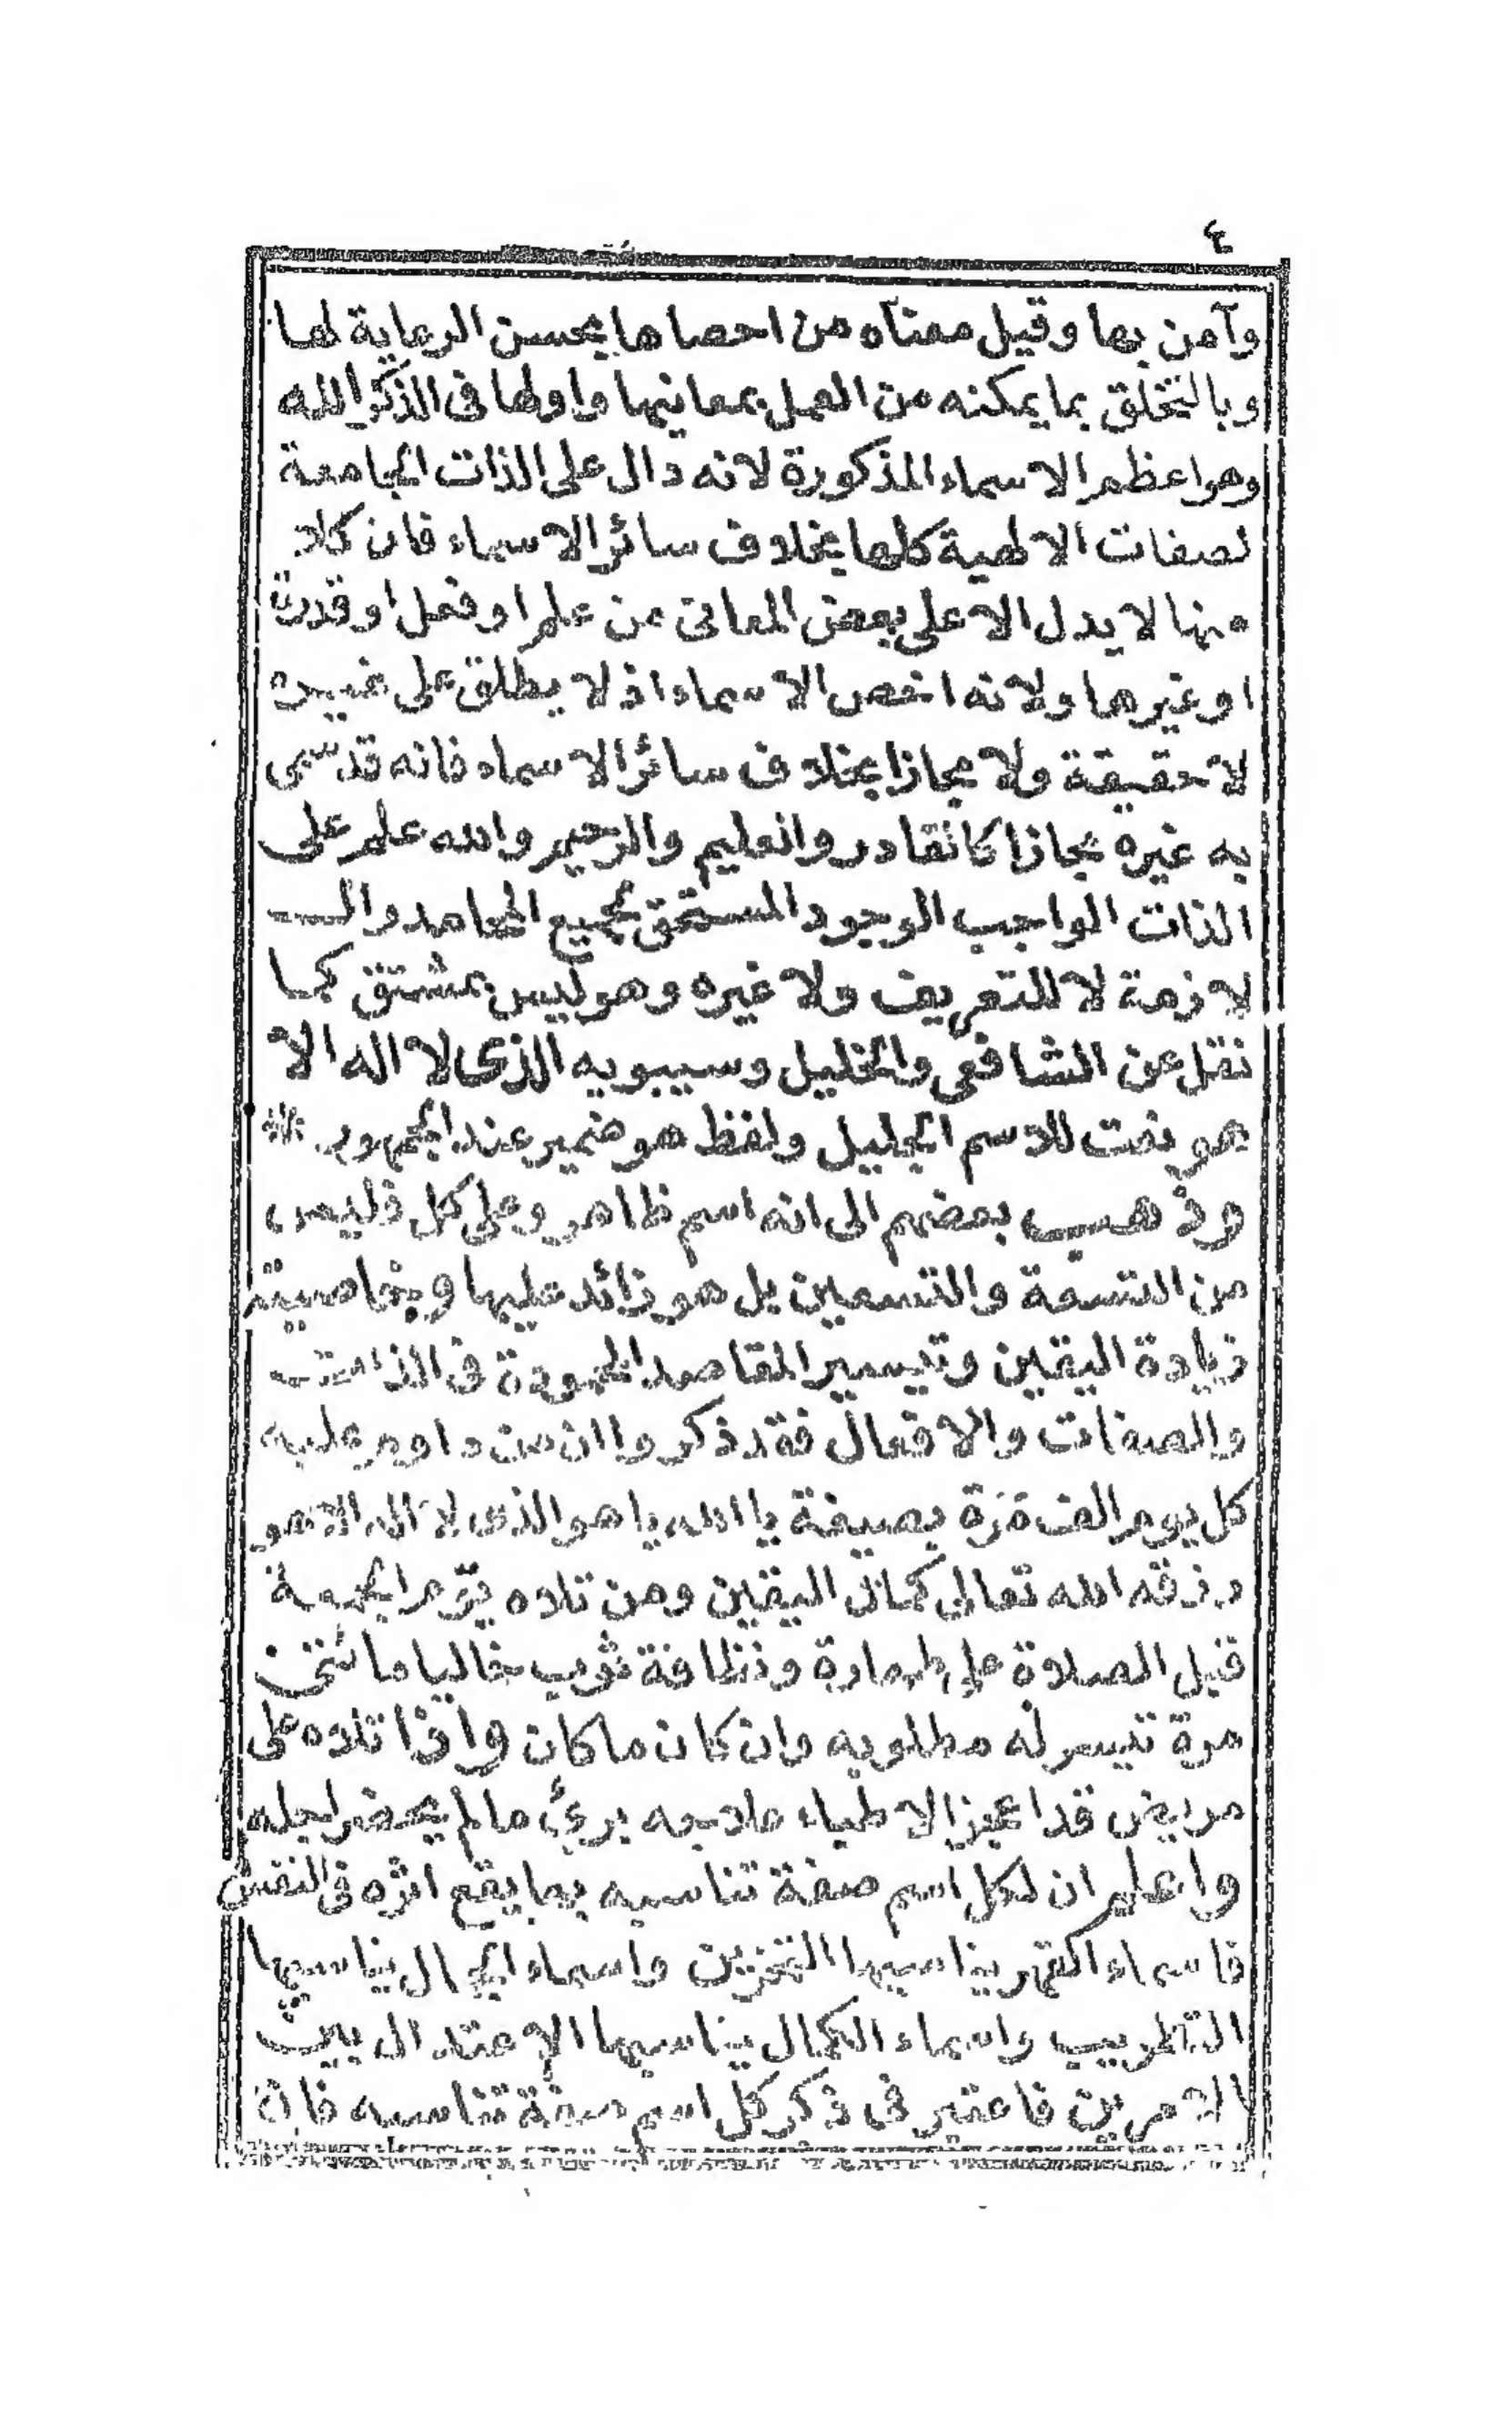 ٤
وآمن بها وقيل معناه من احصاها بحسن الرعاية لها
وبالتخلق بما يمكنه من العمل بمعانيها واولها فى الذكر الله
وهو اعظم الاسماء المذكورة لانه دال على الذات الجامعة
لصفات الالهية كلها بخلاف سائر الاسماء فان كلا
منها لا يدل الا على بعض المعانى من علم او فعل او قدرة
او غيرها ولانه اخص الاسماء اذ لا يطلق على غيره
لا حقيقة ولا مجازا بخلاف سائر الاسماء فانه قد تسمى
به غيره مجازا كالقادر والعليم والرحيم والله علم على
الذات الواجب الوجود المستحق لجميع المحامد وال
لازمة لا للتعريف ولا غيره وهو ليس بمشتق كما
نقل عن الشافعى والخليل وسيبويه الذى لا اله الا
هو نعت للاسم الجليل ولفظ هو ضمير عند الجمهور
وذهب بعضهم الى انه اسم ظاهر وعلى كل فليس
من التسعة والتسعين بل هو زائد عليها وبخاصيته
زيادة اليقين وتيسير المقاصد المحمودة فى الذات
والصفات والافعال فقد ذكروا ان من داوم عليه
كل يوم الف مرة بصيغة يا الله يا هو الذى لا اله الا هو
رزقه الله تعالى كمال اليقين ومن تلاه يوم الجمعة
قبل الصلاة على طهارة ونظافة ثوب خاليا مائتى
مرة تيسر له مطلوبه وان كان ما كان واذا تلاه على
مريض قد اعجز الاطباء علاجه برئ ما لم يحضر اجله
واعلم ان لكل اسم صفة تناسبه بها يقع اثره فى النفس
فاسماء القهر يناسبها التحزين واسماء الجمال يناسبها
التطريب واسماء الكمال يناسبها الاعتدال بين
الامرين فاعتبر فى ذكر كل اسم صفة تناسبه فان